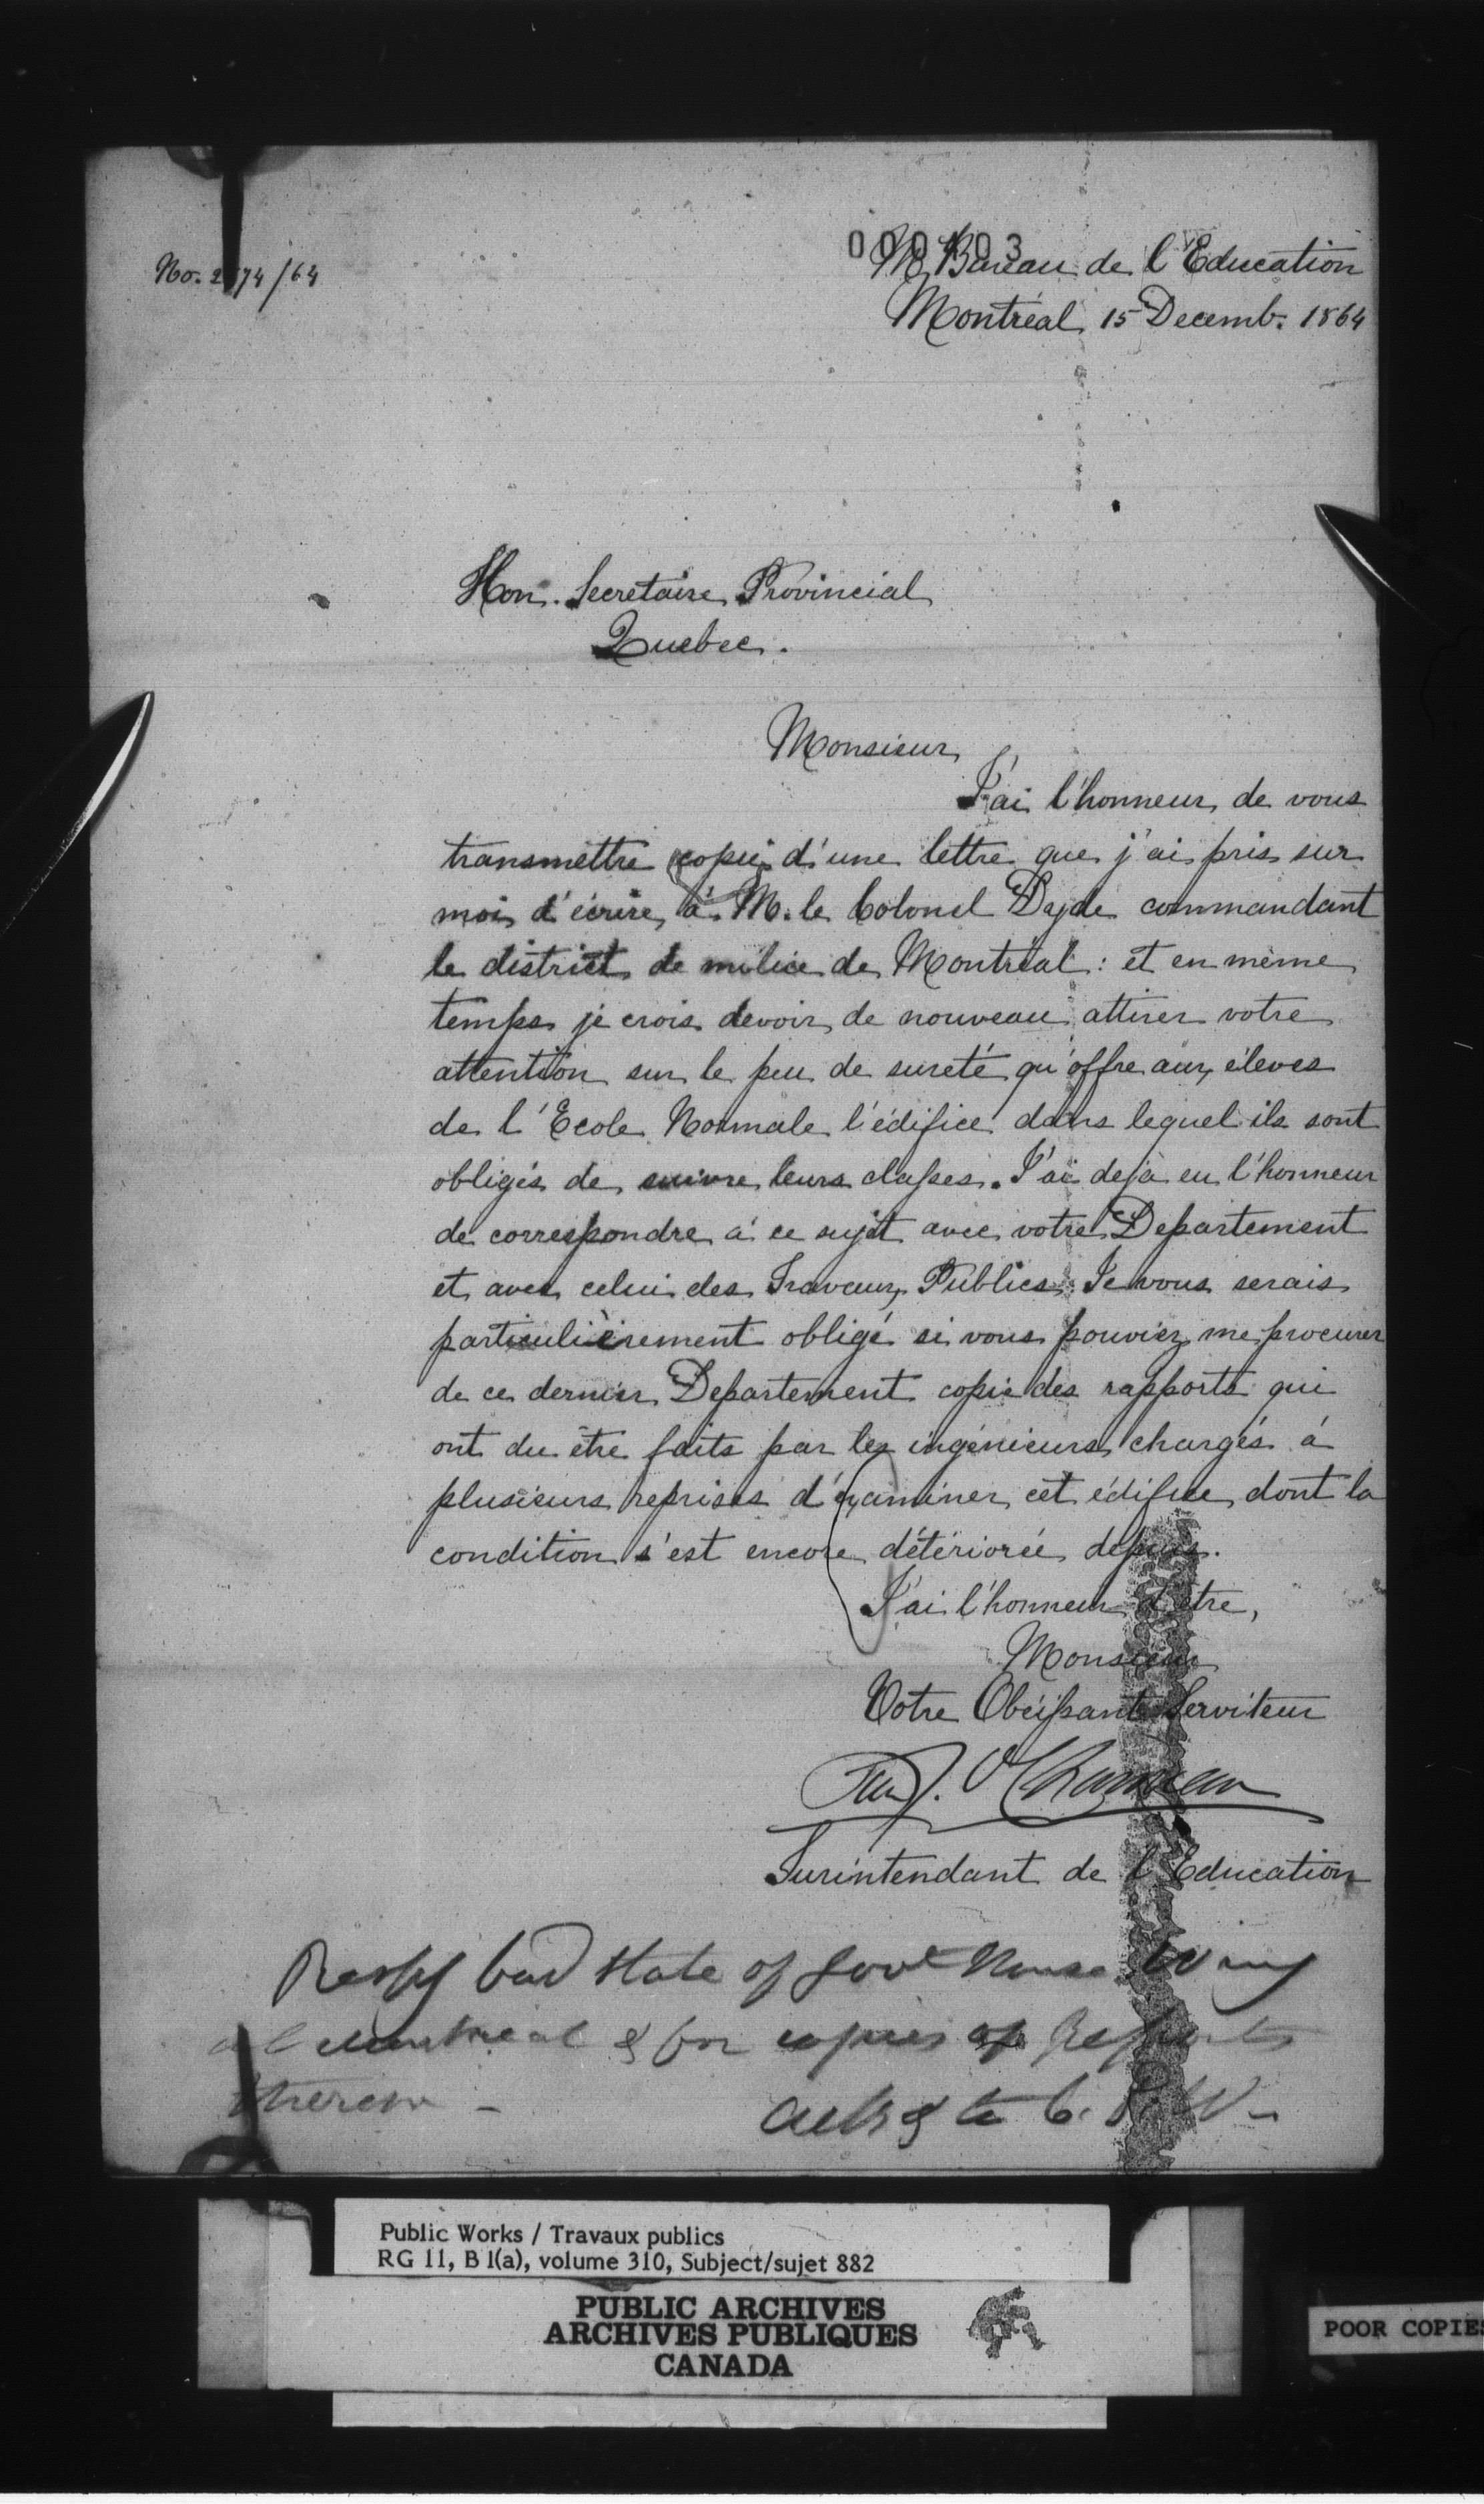 000103
No. 2174/64
Bureau de l'Education
Montréal 15 Decemb. 1864
Hon. Secretaire Provincial
Quebec.
Monsieur,
J'ai l'honneur de vous
transmettre copie d'une lettre que j'ai pris sur
moi d'écrire à M. le Colonel Dyde commandant
le district de milice de Montréal : et en même
temps je crois devoir de nouveau attirer votre
attention sur le peu de sureté qu'offre aux élèves
de l'Ecole Normale l'édifice dans lequel ils sont
obligés de suivre leurs classes. J'ai dejà eu l'honneur
de correspondre à ce sujet avec votre Departement
et avec celui des Travaux Publics. Je vous serais
particulièrement obligé si vous pouviez me procurer
de ce dernier Departement copie des rapports qui
ont du être faits par les ingénieurs chargés à
plusieurs reprises d'examiner cet édifice dont la
condition s'est encore détériorée depuis.
J'ai l'honneur d'être,
Monsieur
Votre Obéissant Serviteur
Chauveau
Surintendant de l'Education
Respg bad state of Govt House Wing
at Montreal & for copies of Reports
thereon –
Ack & to C. P. W –
Public Works / Travaux publics
RG 11, B 1(a), volume 310, Subject/sujet 882
PUBLIC ARCHIVES
ARCHIVES PUBLIQUES
CANADA
POOR COPIES